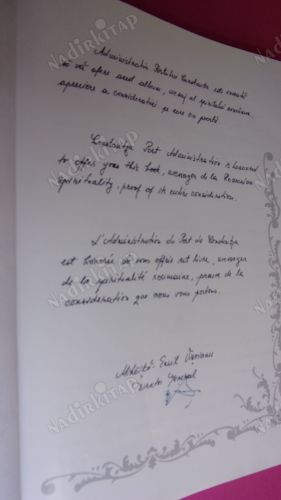 Administrația Portului Constanța este onorată
să vă ofere acest album, mesaj al spiritului românesc,
apreciere a considerației pe care v-o poartă.
Constantza Port Administration is honored
to offer you this book, messenger of the Romanian
spirituality, proof of its entire consideration.
L'Administration du Port de Constantza
est honorée de vous offrir cet livre, messager
de la spiritualité roumaine, preuve de la
consideration que nous vous portons.
Director General
NADİRKİTAP